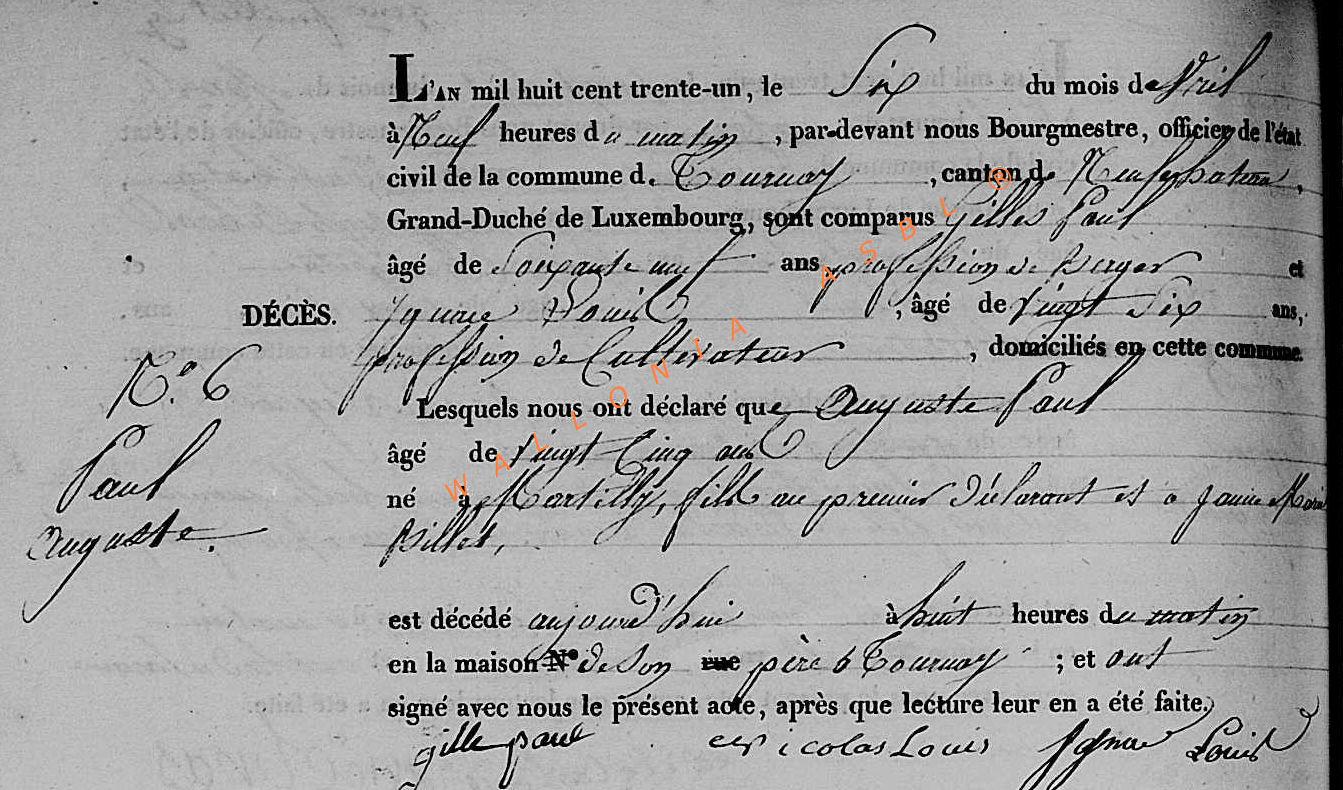 L'AN mil huit cent trente-un, le Six du mois d'avril
à Neuf heures du matin, par-devant nous Bourgmestre, officier de l'état
civil de la commune de Tournay, canton de Neufchateau,
Grand-Duché de Luxembourg, sont comparus Gilles Paul
âgé de Soixante neuf ans profession de Berger et
DÉCÈS. Ignace Louis, âgé de vingt Six ans,
profession de Cultivateur, domiciliés en cette commune.
N.° 6
Lesquels nous ont déclaré que Auguste Paul
Paul
âgé de vingt Cinq ans
né à Martilly, fils au premier Déclarant et a Jeanne Marie
Auguste.
Billet,
est décédé aujourd'hui à huit heures du matin
en la maison N° de Son rue père à Tournay ; et ont
signé avec nous le présent acte, après que lecture leur en a été faite.
gille paul Nicolas Louis Ignace Louis
WALLONIA ASBL